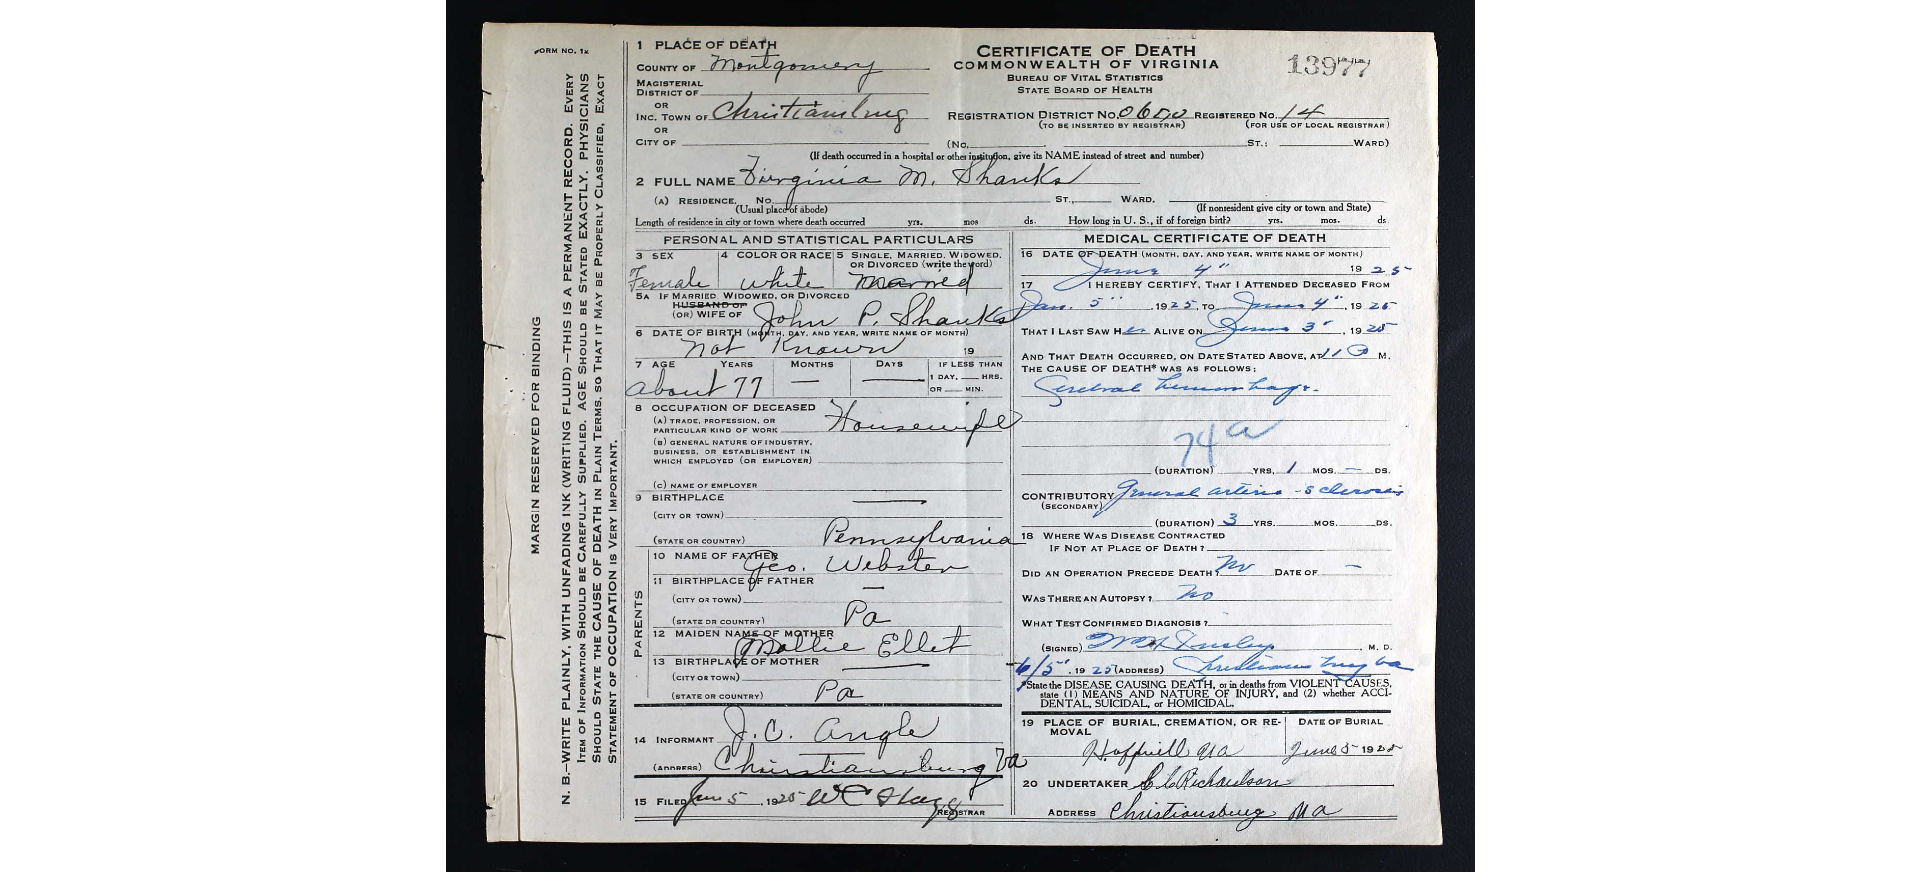 FORM NO. 1x
MARGIN RESERVED FOR BINDING
N. B.—WRITE PLAINLY, WITH UNFADING INK (WRITING FLUID)—THIS IS A PERMANENT RECORD. EVERY
ITEM OF INFORMATION SHOULD BE CAREFULLY SUPPLIED. AGE SHOULD BE STATED EXACTLY. PHYSICIANS
SHOULD STATE THE CAUSE OF DEATH IN PLAIN TERMS, SO THAT IT MAY BE PROPERLY CLASSIFIED. EXACT
STATEMENT OF OCCUPATION IS VERY IMPORTANT.
1 PLACE OF DEATH
COUNTY OF Montgomery
MAGISTERIAL
DISTRICT OF
OR
INC. TOWN OF Christiansburg
OR
CITY OF
CERTIFICATE OF DEATH
COMMONWEALTH OF VIRGINIA
BUREAU OF VITAL STATISTICS
STATE BOARD OF HEALTH
13977
REGISTRATION DISTRICT NO. REGISTERED NO. 14
(TO BE INSERTED BY REGISTRAR) (FOR USE OF LOCAL REGISTRAR)
(NO. ST.; WARD)
(If death occurred in a hospital or other institution, give its NAME instead of street and number)
2 FULL NAME Virginia M. Shanks
(A) RESIDENCE. NO. ST., WARD.
(Usual place of abode) (If nonresident give city or town and State)
Length of residence in city or town where death occurred yrs. mos ds. How long in U. S., if of foreign birth? yrs. mos. ds
PERSONAL AND STATISTICAL PARTICULARS
3 SEX 4 COLOR OR RACE 5 SINGLE, MARRIED, WIDOWED,
OR DIVORCED (write the word)
Female white married
5A IF MARRIED, WIDOWED, OR DIVORCED
HUSBAND OF
(OR) WIFE OF John P. Shanks
6 DATE OF BIRTH (MONTH, DAY, AND YEAR, WRITE NAME OF MONTH)
not Known 19
7 AGE YEARS MONTHS DAYS IF LESS THAN
1 DAY, HRS.
OR MIN.
about 77 — —
8 OCCUPATION OF DECEASED
(A) TRADE, PROFESSION, OR
PARTICULAR KIND OF WORK Housewife
(B) GENERAL NATURE OF INDUSTRY,
BUSINESS, OR ESTABLISHMENT IN
WHICH EMPLOYED (OR EMPLOYER)
(C) NAME OF EMPLOYER
9 BIRTHPLACE —
(CITY OR TOWN)
(STATE OR COUNTRY) Pennsylvania
PARENTS
10 NAME OF FATHER Geo. Webster
11 BIRTHPLACE OF FATHER —
(CITY OR TOWN)
(STATE OR COUNTRY) Pa
12 MAIDEN NAME OF MOTHER Mollie Ellet
13 BIRTHPLACE OF MOTHER —
(CITY OR TOWN)
(STATE OR COUNTRY) Pa
14 INFORMANT J. C. Angle
(ADDRESS) Christiansburg Va
15 FILED Jun 5, 1925 W C
REGISTRAR
MEDICAL CERTIFICATE OF DEATH
16 DATE OF DEATH (MONTH, DAY, AND YEAR, WRITE NAME OF MONTH)
June 4" 1925
17 I HEREBY CERTIFY, THAT I ATTENDED DECEASED FROM
Jan. 5", 1925, TO June 4", 1925
THAT I LAST SAW HER ALIVE ON June 3", 1925
AND THAT DEATH OCCURRED, ON DATE STATED ABOVE, AT 11 P M.
THE CAUSE OF DEATH* WAS AS FOLLOWS:
Cerebral hemorrhage.
74a
(DURATION) YRS. 1 MOS. — DS.
CONTRIBUTORY General arterio-sclerosis
(SECONDARY)
(DURATION) 3 YRS. MOS. DS.
18 WHERE WAS DISEASE CONTRACTED
IF NOT AT PLACE OF DEATH?
DID AN OPERATION PRECEDE DEATH? No DATE OF —
WAS THERE AN AUTOPSY? No
WHAT TEST CONFIRMED DIAGNOSIS?
(SIGNED) , M. D.
6/5", 1925 (ADDRESS) Christiansburg Va
*State the DISEASE CAUSING DEATH, or in deaths from VIOLENT CAUSES,
state (1) MEANS AND NATURE OF INJURY, and (2) whether ACCI-
DENTAL, SUICIDAL, or HOMICIDAL.
19 PLACE OF BURIAL, CREMATION, OR RE- DATE OF BURIAL
MOVAL
Va June 5 1925
20 UNDERTAKER Richardson
ADDRESS Christiansburg Va